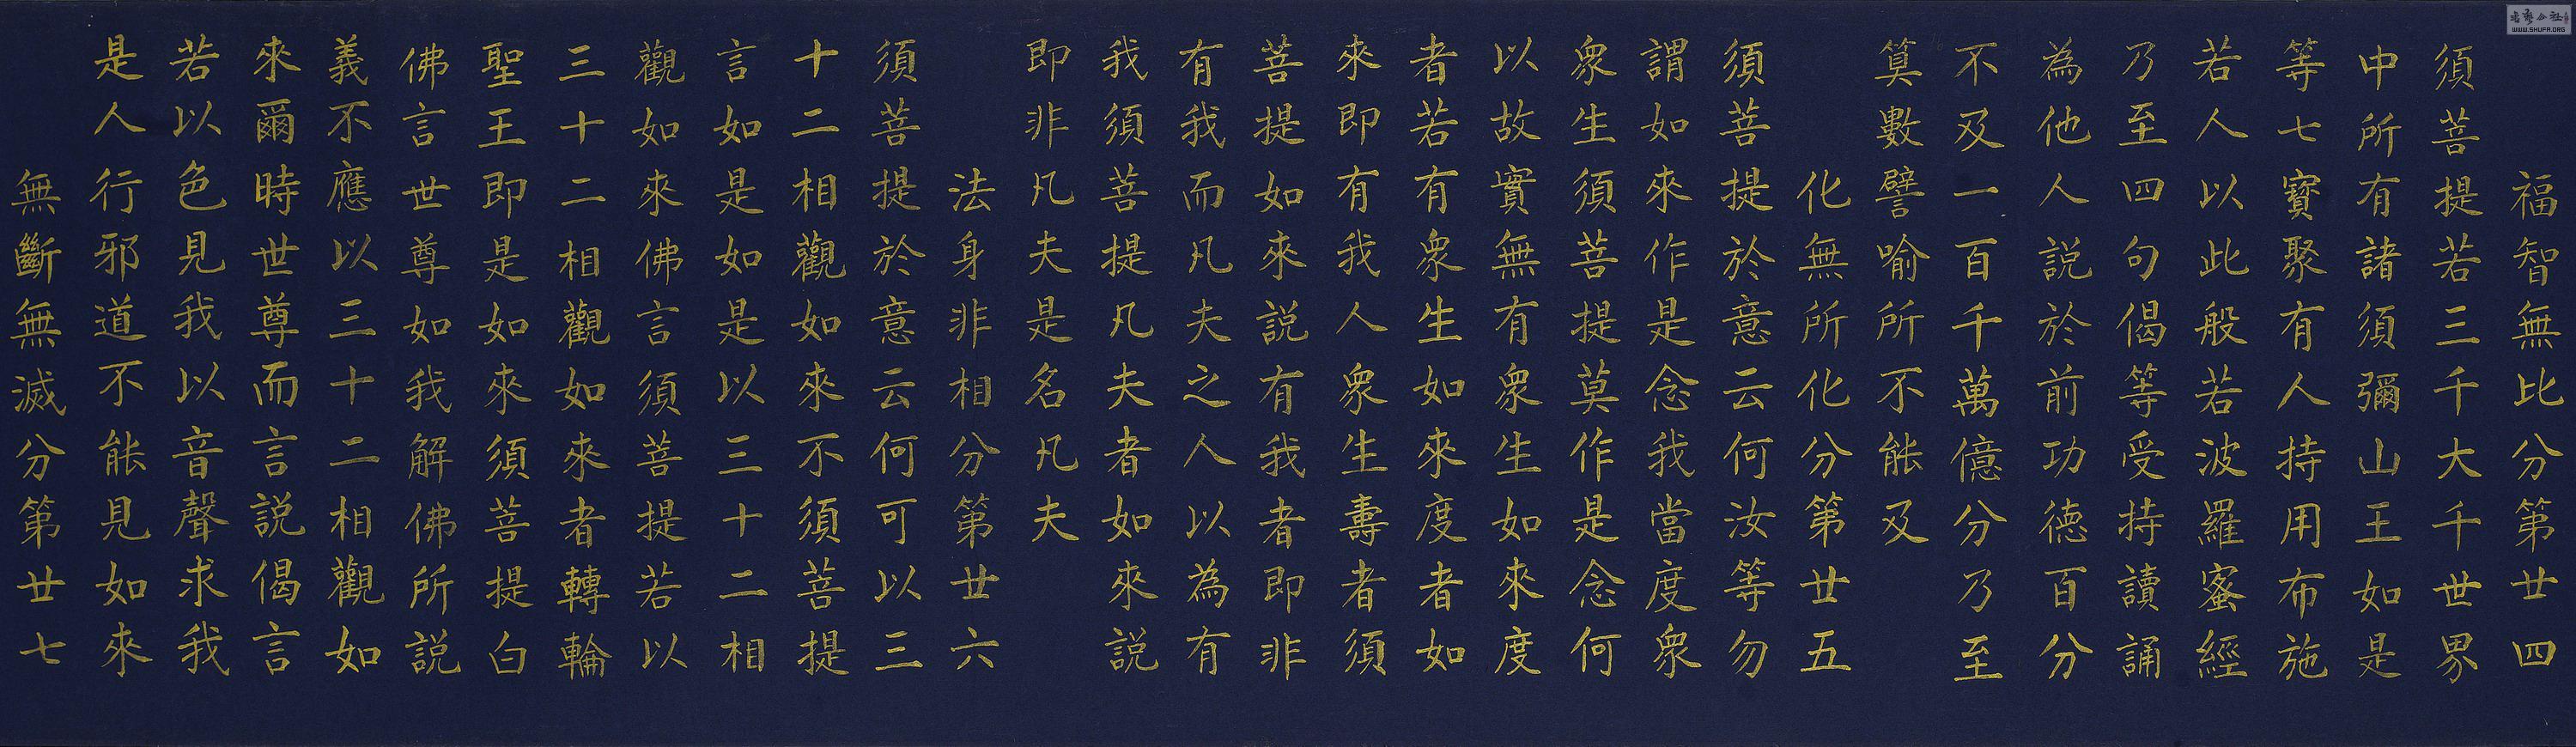 福智無比分第廿四
須菩提若三千大千世界
中所有諸須彌山王如是
等七寶聚有人持用布施
若人以此般若波羅蜜經
乃至四句偈等受持讀誦
為他人說於前功德百分
不及一百千萬億分乃至
算數譬喻所不能及
化無所化分第廿五
須菩提於意云何汝等勿
謂如來作是念我當度眾
眾生須菩提莫作是念何
以故實無有眾生如來度
者若有眾生如來度者如
來即有我人眾生壽者須
菩提如來說有我者即非
有我而凡夫之人以為有
我須菩提凡夫者如來說
即非凡夫是名凡夫
法身非相分第廿六
須菩提於意云何可以三
十二相觀如來不須菩提
言如是如是以三十二相
觀如來佛言須菩提若以
三十二相觀如來者轉輪
聖王即是如來須菩提白
佛言世尊如我解佛所說
義不應以三十二相觀如
來爾時世尊而言說偈言
若以色見我以音聲求我
是人行邪道不能見如來
無斷無滅分第廿七
WWW.SHUFA.ORG